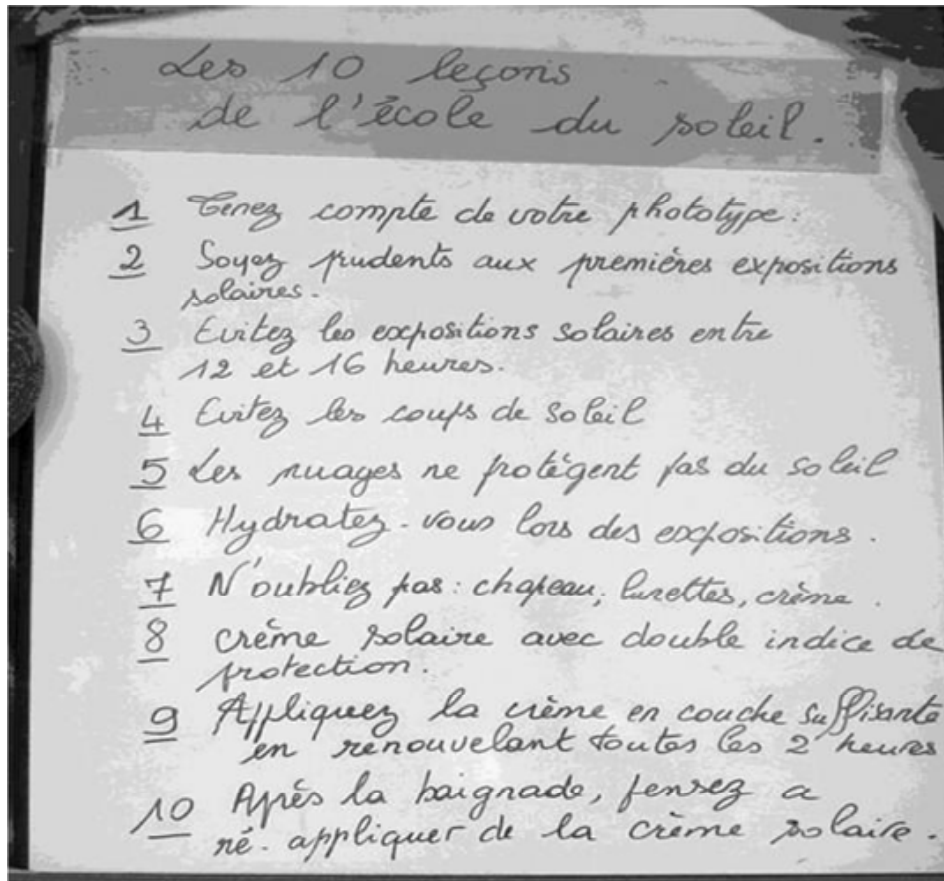 Les 10 leçons
de l'école du soleil.
1 Tenez compte de votre phototype.
2 Soyez prudents aux premières expositions
solaires.
3 Evitez les expositions solaires entre
12 et 16 heures.
4 Evitez les coups de soleil
5 Les nuages ne protègent pas du soleil
6 Hydratez-vous lors des expositions.
7 N'oubliez pas: chapeau, lunettes, crème.
8 crème solaire avec double indice de
protection.
9 Appliquez la crème en couche suffisante
en renouvelant toutes les 2 heures
10 Après la baignade, pensez a
ré-appliquer de la crème solaire.